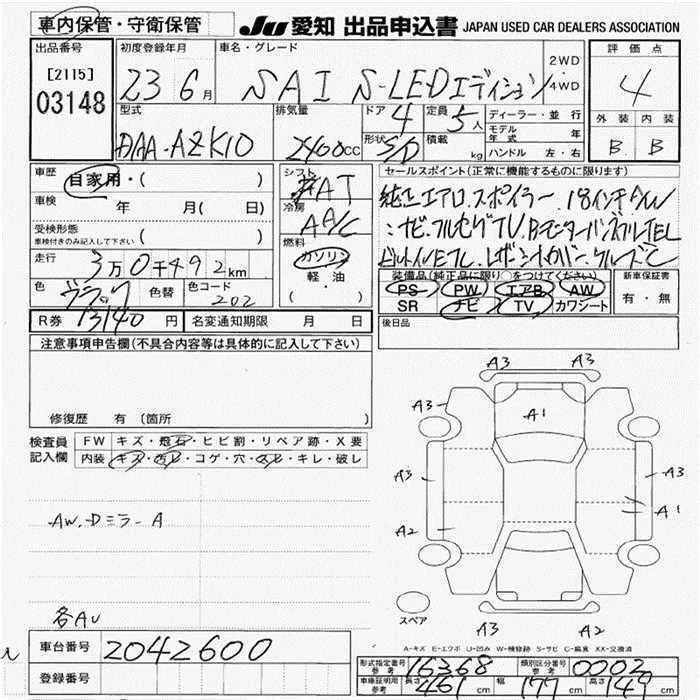 車内保管・守衛保管 JU 愛知 出品申込書 JAPAN USED CAR DEALERS ASSOCIATION
出品番号 初度登録年月 車名・グレード 評価点
[2115] 23 6月 SAI S-LEDエディション 2WD・4WD 4
03148
型式 排気量 ドア 4 定員 5人 ディーラー・並行 外装 内装
DAA-AZK10 2400cc 形状 SD 積載 kg モデル年式 年 B B
ハンドル 左・右
車歴 自家用・( ) シフト AT セールスポイント(正常に機能するものに限ります)
車検 年 月( 日) 冷房 AAC 純正エアロ.スポイラー.18インチAW
受検形態 ( ) ナビ.フルセグTV.Bモニター
車検付きのみ記入して下さい
走行 3万0千492km 燃料 ガソリン・軽・油 ( )
色 ブラック 色替 色コード 202
装備品(純正品に限り○をつけてください) 新車保証書
PS PW エアB AW 有・無
SR ナビ TV カワシート
R券 13140円 名変通知期限 月 日 後日品
注意事項申告欄(不具合内容等は具体的に記入して下さい)
修復歴 有 (箇所 )
検査員記入欄 FW キズ・飛石・ヒビ割・リペア跡・X要
内装 キズ・汚レ・コゲ・穴・スレ・キレ・破レ
AW.Dミラー A
A3 A3
A3 A1
A3 A3
A1
A2
A3 A2
スペア
A-キズ E-エクボ U-凹み W-補修跡 S-サビ C-腐食 XX-交換済
車台番号 2042600
登録番号
形式指定番号 参考 16368 類別区分番号 参考 0002
車庫証明用 参考 長さ 461cm 幅 177cm 高さ 149cm